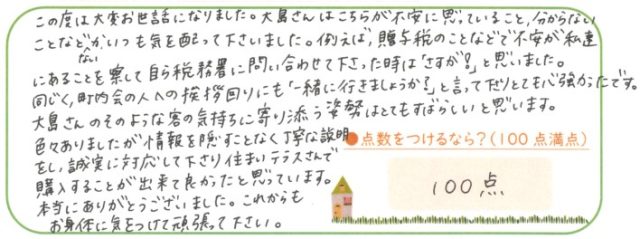 この度は大変お世話になりました。大島さんはこちらが不安に思っていること、分からない
ことなどがないかいつも気を配って下さいました。例えば、贈与税のことなどで不安が私達
にあることを察して自ら税務署に問い合わせて下さった時は「さすが!」と思いました。
同じく、町内会の人への挨拶回りにも「一緒に行きましょうか?」と言って下さりとても心強かったです。
大島さんのそのような客の気持ちに寄り添う姿勢はとてもすばらしいと思います。
色々ありましたが情報を隠すことなく丁寧な説明
をし、誠実に対応して下さり住まいテラスさんで
購入することが出来て良かったと思っています。
本当にありがとうございました。これからも
お身体に気をつけて頑張って下さい。
●点数をつけるなら?(100点満点)
100点